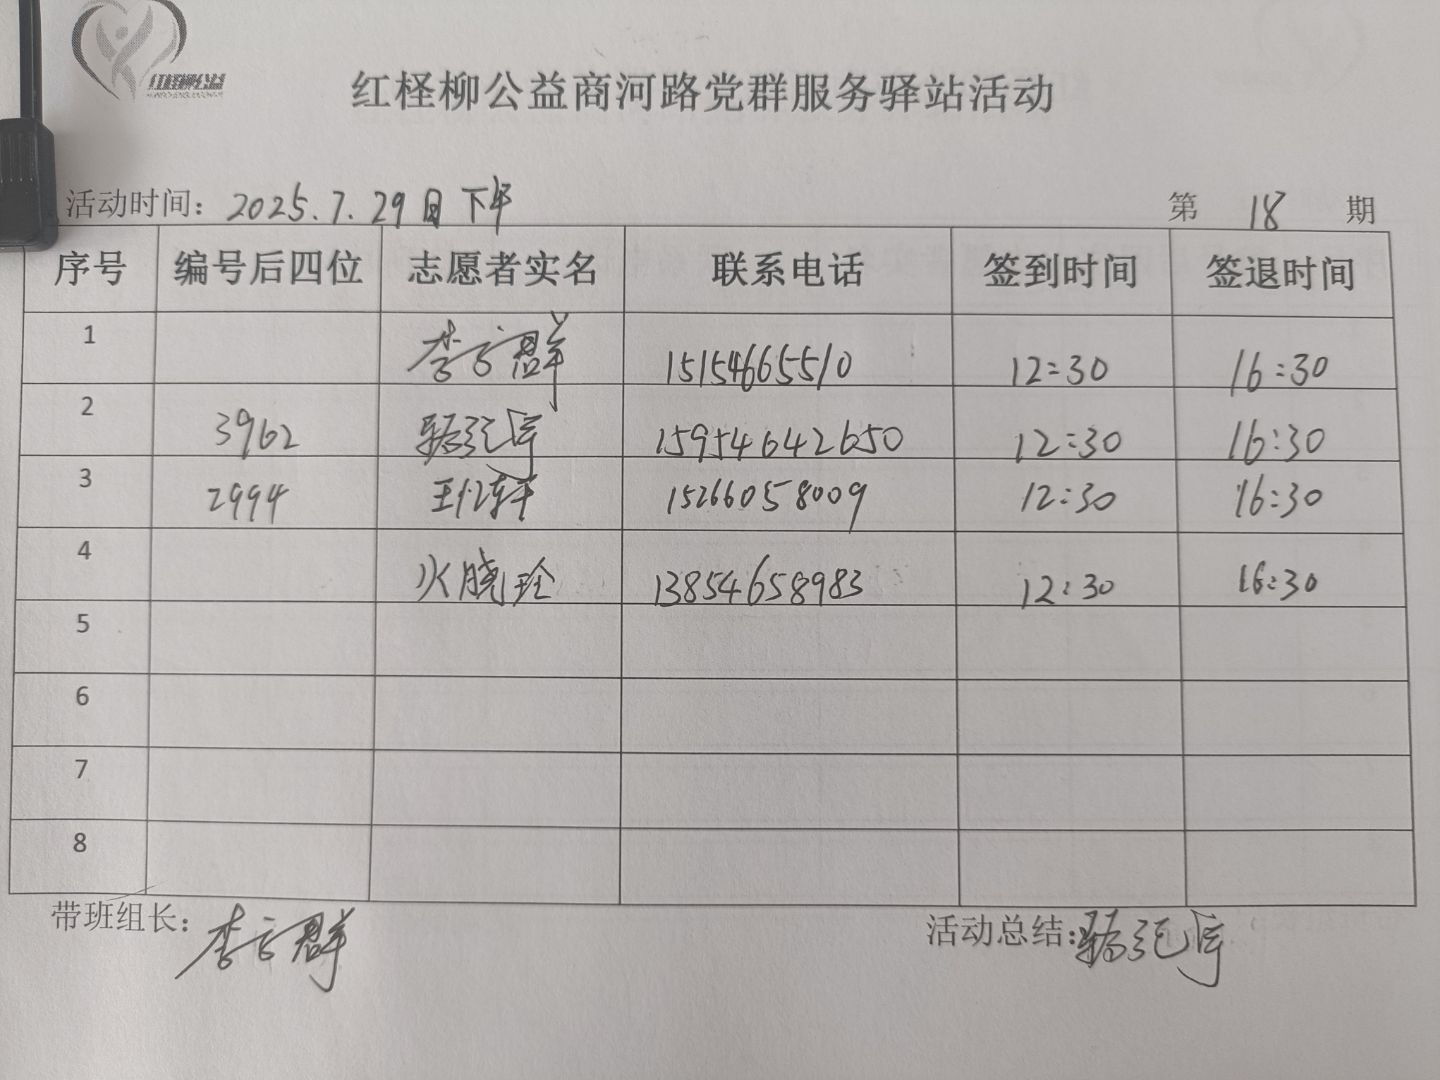 红柽柳公益
红柽柳公益商河路党群服务驿站活动
活动时间：2025.7.29日下午 第 18 期
序号 编号后四位 志愿者实名 联系电话 签到时间 签退时间
1 李方群 15154665510 12:30 16:30
2 3962 15954642650 12:30 16:30
3 2994 王忆轩 15266058009 12:30 16:30
4 晓玲 13854658983 12:30 16:30
5
6
7
8
带班组长：李方群 活动总结：